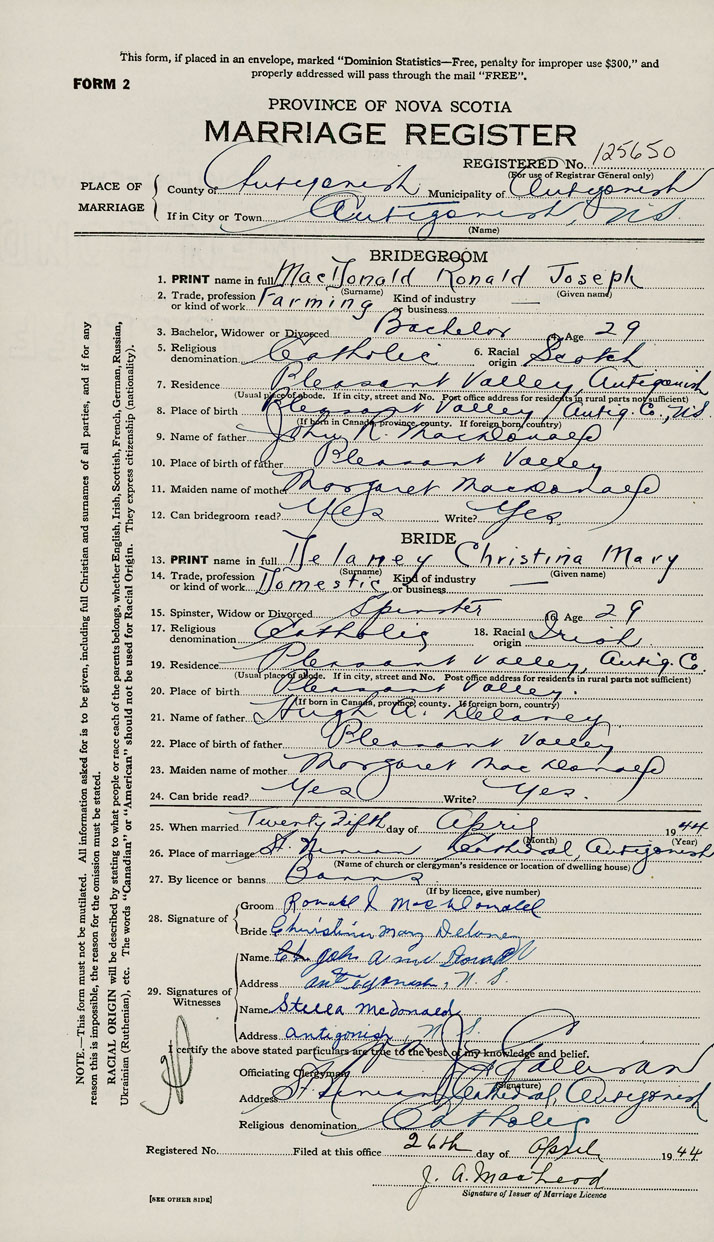 This form, if placed in an envelope, marked "Dominion Statistics—Free, penalty for improper use $300," and
properly addressed will pass through the mail "FREE".
FORM 2
PROVINCE OF NOVA SCOTIA
MARRIAGE REGISTER
REGISTERED No. 125650
(For use of Registrar General only)
PLACE OF MARRIAGE
County of Antigonish Municipality of Antigonish
If in City or Town Antigonish, N.S.
(Name)
BRIDEGROOM
1. PRINT name in full MacDonald Ronald Joseph
(Surname) (Given name)
2. Trade, profession or kind of work Farming Kind of industry or business —
3. Bachelor, Widower or Divorced Bachelor 4. Age 29
5. Religious denomination Catholic 6. Racial origin Scotch
7. Residence Pleasant Valley, Antigonish
(Usual place of abode. If in city, street and No. Post office address for residents in rural parts not sufficient)
8. Place of birth Pleasant Valley, Antig. Co., N.S.
(If born in Canada, province, county. If foreign born, country)
9. Name of father John R. MacDonald
10. Place of birth of father Pleasant Valley
11. Maiden name of mother Margaret MacDonald
12. Can bridegroom read? Yes Write? Yes
BRIDE
13. PRINT name in full Delaney Christina Mary
(Surname) (Given name)
14. Trade, profession or kind of work Domestic Kind of industry or business —
15. Spinster, Widow or Divorced Spinster 16. Age 29
17. Religious denomination Catholic 18. Racial origin Irish
19. Residence Pleasant Valley, Antig. Co.
(Usual place of abode. If in city, street and No. Post office address for residents in rural parts not sufficient)
20. Place of birth Pleasant Valley.
(If born in Canada, province, county. If foreign born, country)
21. Name of father Hugh A. Delaney
22. Place of birth of father Pleasant Valley
23. Maiden name of mother Margaret MacDonald
24. Can bride read? Yes Write? Yes.
25. When married Twenty Fifth day of April 1944
(Month) (Year)
26. Place of marriage St. Ninian Cathedral, Antigonish
(Name of church or clergyman's residence or location of dwelling house)
27. By licence or banns Banns
(If by licence, give number)
28. Signature of
Groom Ronald J. MacDonald
Bride Christina Mary Delaney
29. Signatures of Witnesses
Name John
Address Antigonish, N.S.
Name Stella McDonald
Address Antigonish, N.S.
I certify the above stated particulars are true to the best of my knowledge and belief.
Officiating Clergyman
(Signature)
Address St. Ninian Cathedral, Antigonish
Religious denomination Catholic
Registered No. Filed at this office 26th day of April 1944
J. A. MacLeod
Signature of Issuer of Marriage Licence
[SEE OTHER SIDE]
NOTE.—This form must not be mutilated. All information asked for is to be given, including full Christian and surnames of all parties, and if for any
reason this is impossible, the reason for the omission must be stated.
RACIAL ORIGIN will be described by stating to what people or race each of the parents belongs, whether English, Irish, Scottish, French, German, Russian,
Ukrainian (Ruthenian), etc. The words "Canadian" or "American" should not be used for Racial Origin. They express citizenship (nationality).